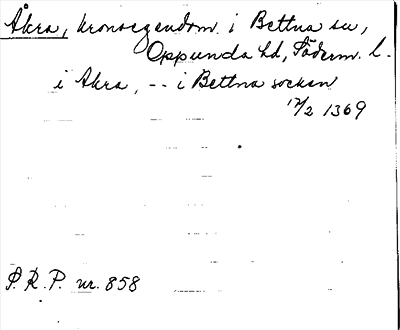 Åkra, kronoegendom i Bettna sn,
Oppunda hd, Söderm. l.
i Akra, -- i Bettna socken
17/2 1369
P.R.P. nr. 858